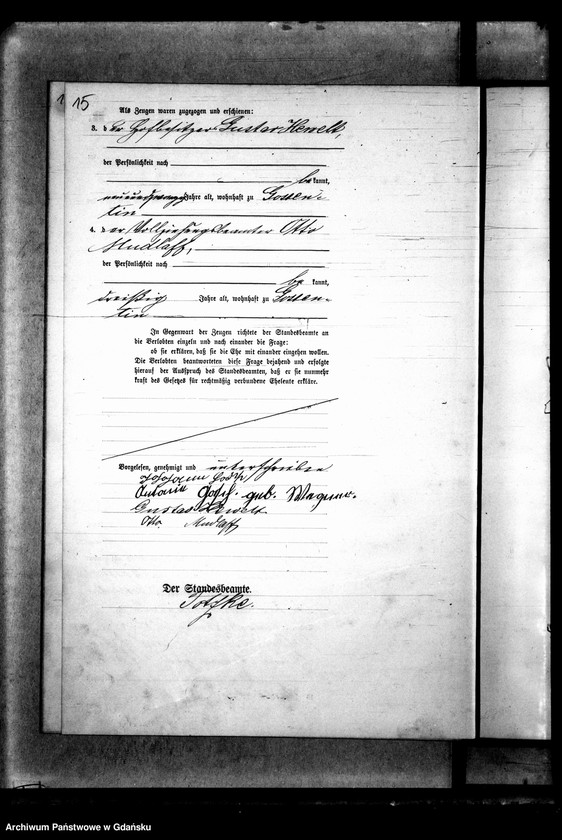 15
Als Zeugen waren zugezogen und erschienen:
3. der Hofbesitzer Gustav Hewelt,
der Persönlichkeit nach
bekannt,
Jahre alt, wohnhaft zu Gossen-
tin
4. der Vollziehungsbeamter Otto
Mudlaff,
der Persönlichkeit nach
bekannt,
dreißig Jahre alt, wohnhaft zu Gossen-
tin
In Gegenwart der Zeugen richtete der Standesbeamte an
die Verlobten einzeln und nach einander die Frage:
ob sie erklären, daß sie die Ehe mit einander eingehen wollen.
Die Verlobten beantworteten diese Frage bejahend und erfolgte
hierauf der Ausspruch des Standesbeamten, daß er sie nunmehr
kraft des Gesetzes für rechtmäßig verbundene Eheleute erkläre.
Vorgelesen, genehmigt und unterschrieben
Johann
Antonie geb. Wegner.
Gustav Hewelt
Otto Mudlaff
Der Standesbeamte.
Archiwum Państwowe w Gdańsku